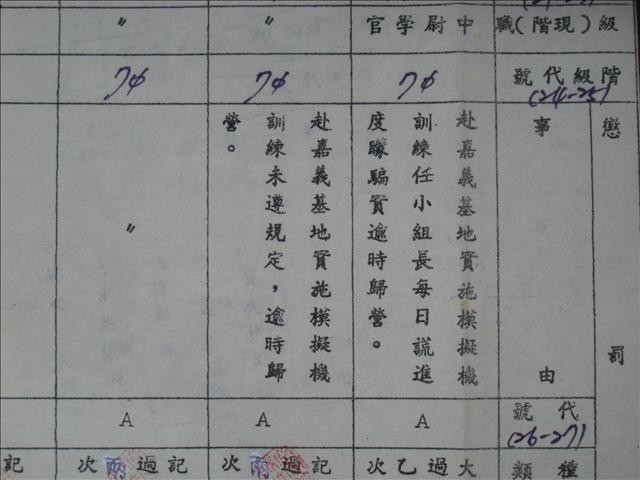 級(現階)職
中尉學官
〃
〃
階級代號
(24-25)
7φ
7φ
7φ
懲罰
事由
赴嘉義基地實施模擬機
訓練任小組長每日謊進
度矇騙實逾時歸營。
赴嘉義基地實施模擬機
訓練未遵規定，逾時歸
營。
〃
代號
(26-27)
A
A
A
種類
大過乙次
記過兩次
記過兩次
記